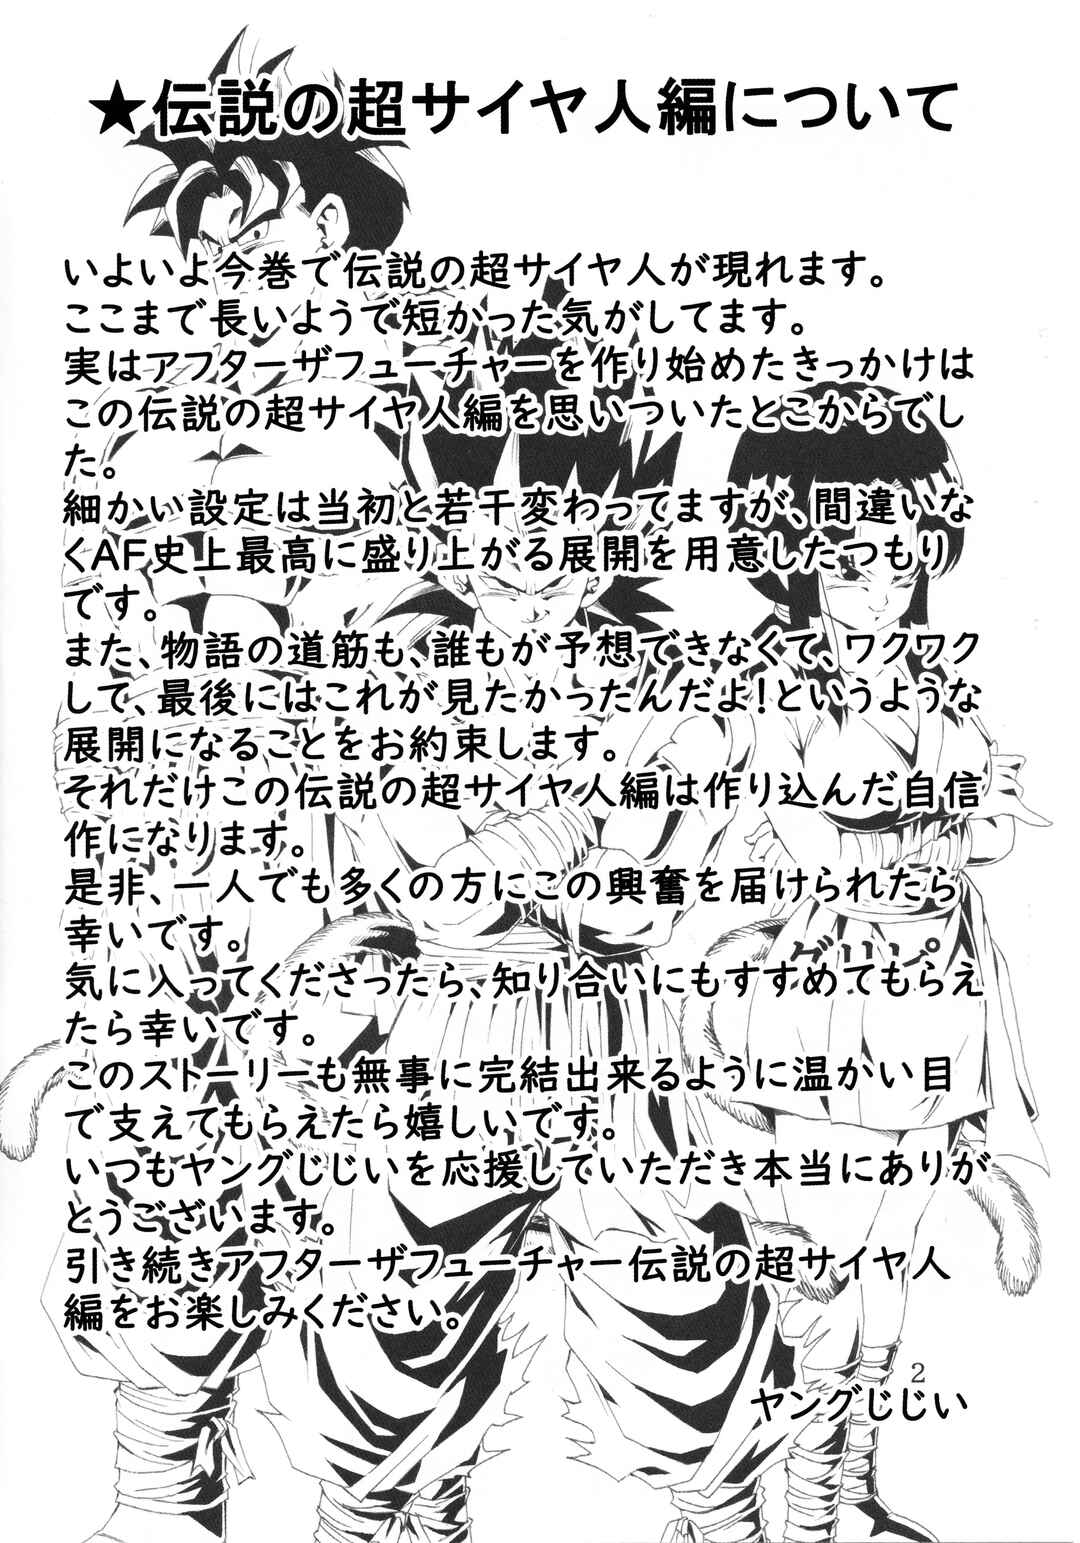 ★伝説の超サイヤ人編について
いよいよ今巻で伝説の超サイヤ人が現れます。
ここまで長いようで短かった気がしてます。
実はアフターザフューチャーを作り始めたきっかけは
この伝説の超サイヤ人編を思いついたとこからでし
た。
細かい設定は当初と若干変わってますが、間違いな
くAF史上最高に盛り上がる展開を用意したつもり
です。
また、物語の道筋も、誰もが予想できなくて、ワクワク
して、最後にはこれが見たかったんだよ!というような
展開になることをお約束します。
それだけこの伝説の超サイヤ人編は作り込んだ自信
作になります。
是非、一人でも多くの方にこの興奮を届けられたら
幸いです。
気に入ってくださったら、知り合いにもすすめてもらえ
たら幸いです。
このストーリーも無事に完結出来るように温かい目
で支えてもらえたら嬉しいです。
いつもヤングじじいを応援していただき本当にありが
とうございます。
引き続きアフターザフューチャー伝説の超サイヤ人
編をお楽しみください。
2
ヤングじじい